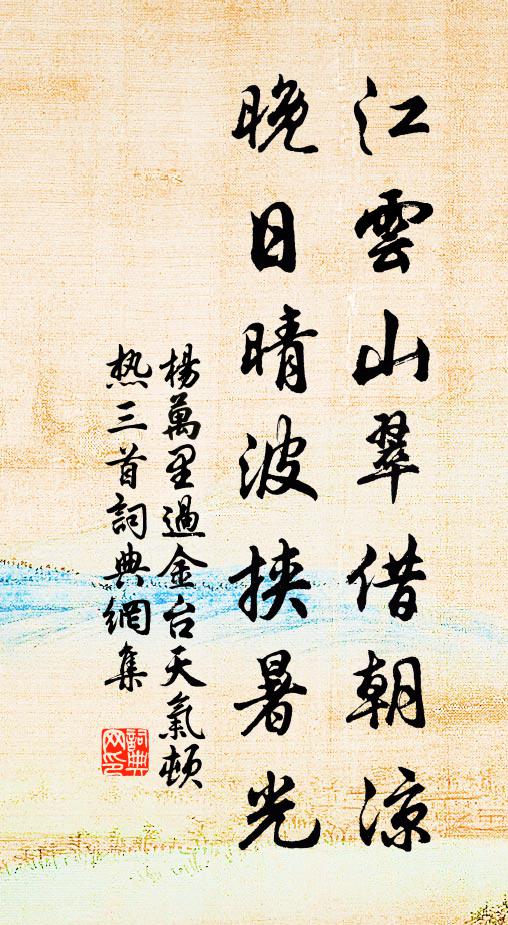 江雲山翠借朝涼
晚日晴波挟暑光
楊萬里過金台天氣頓
热三首詞典網集
詞典
网印